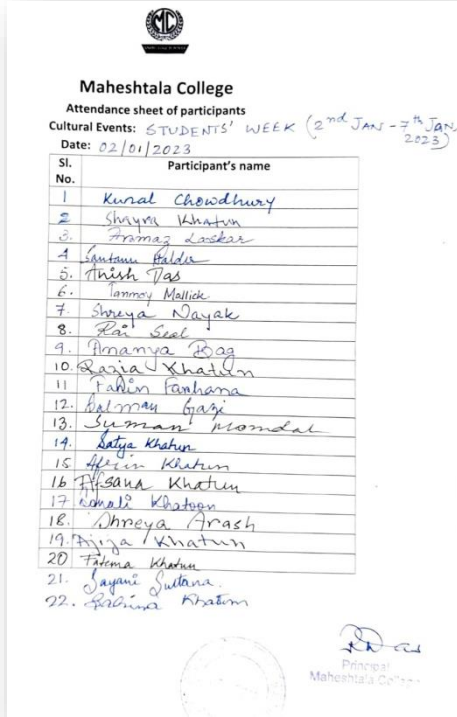 MC
Maheshtala College
Attendance sheet of participants
Cultural Events: STUDENTS' WEEK (2nd JAN - 7th JAN, 2023)
Date: 02/01/2023
Sl. No. Participant's name
1 Kunal Chowdhury
2 Shayra Khatun
3. Laskar
4 Santanu Halder
5. Anish Das
6. Tanmoy Mallick
7. Shreya Nayak
8. Rai Seal
9. Ananya Bag
10. Razia Khatun
11 Farhana
12. Salman Gazi
13. Suman Momdal
14. Satya Khatun
15 Afrin Khatun
16 Afsana Khatun
17 Sonali Khatoon
18. Shreya Arash
19. Ajija Khatun
20 Fatema Khatun
21. Sayani Sultana.
22. Sabina Khatun
Principal
Maheshtala College